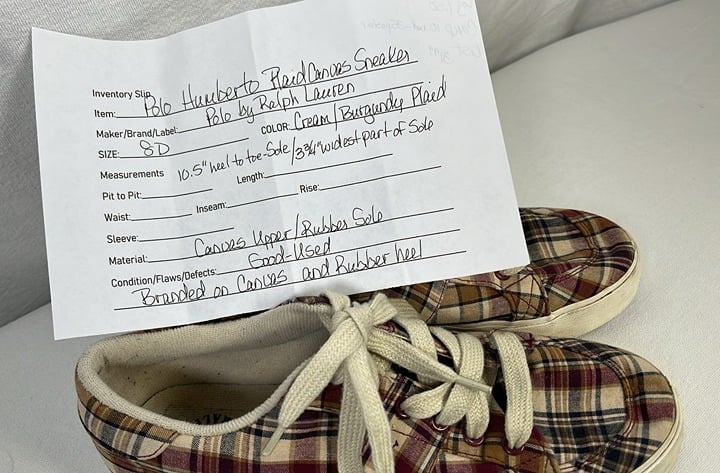 Inventory Slip
Item: Polo Humberto Plaid Canvas Sneaker
Maker/Brand/Label: Polo by Ralph Lauren
SIZE: 8D COLOR: Cream/Burgundy Plaid
Measurements 10.5" heel to toe-Sole/3 3/4" widest part of Sole
Pit to Pit: Length:
Waist: Inseam: Rise:
Sleeve:
Material: Canvas Upper/Rubber Sole
Condition/Flaws/Defects: Good-Used
Branded on Canvas and Rubber heel